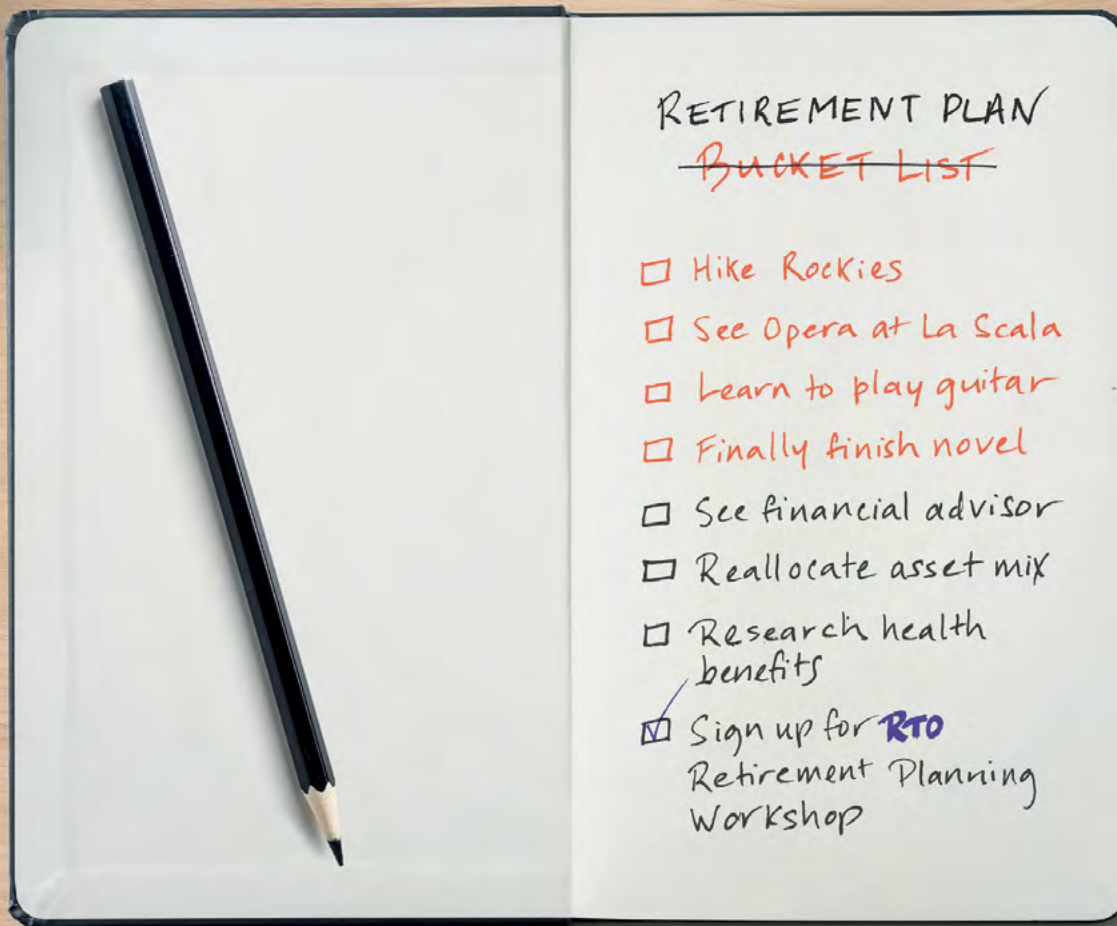 RETIREMENT PLAN
BUCKET LIST
Hike Rockies
See Opera at La Scala
Learn to play guitar
Finally finish novel
See financial advisor
Reallocate asset mix
Research health
benefits
Sign up for RTO
Retirement Planning
Workshop